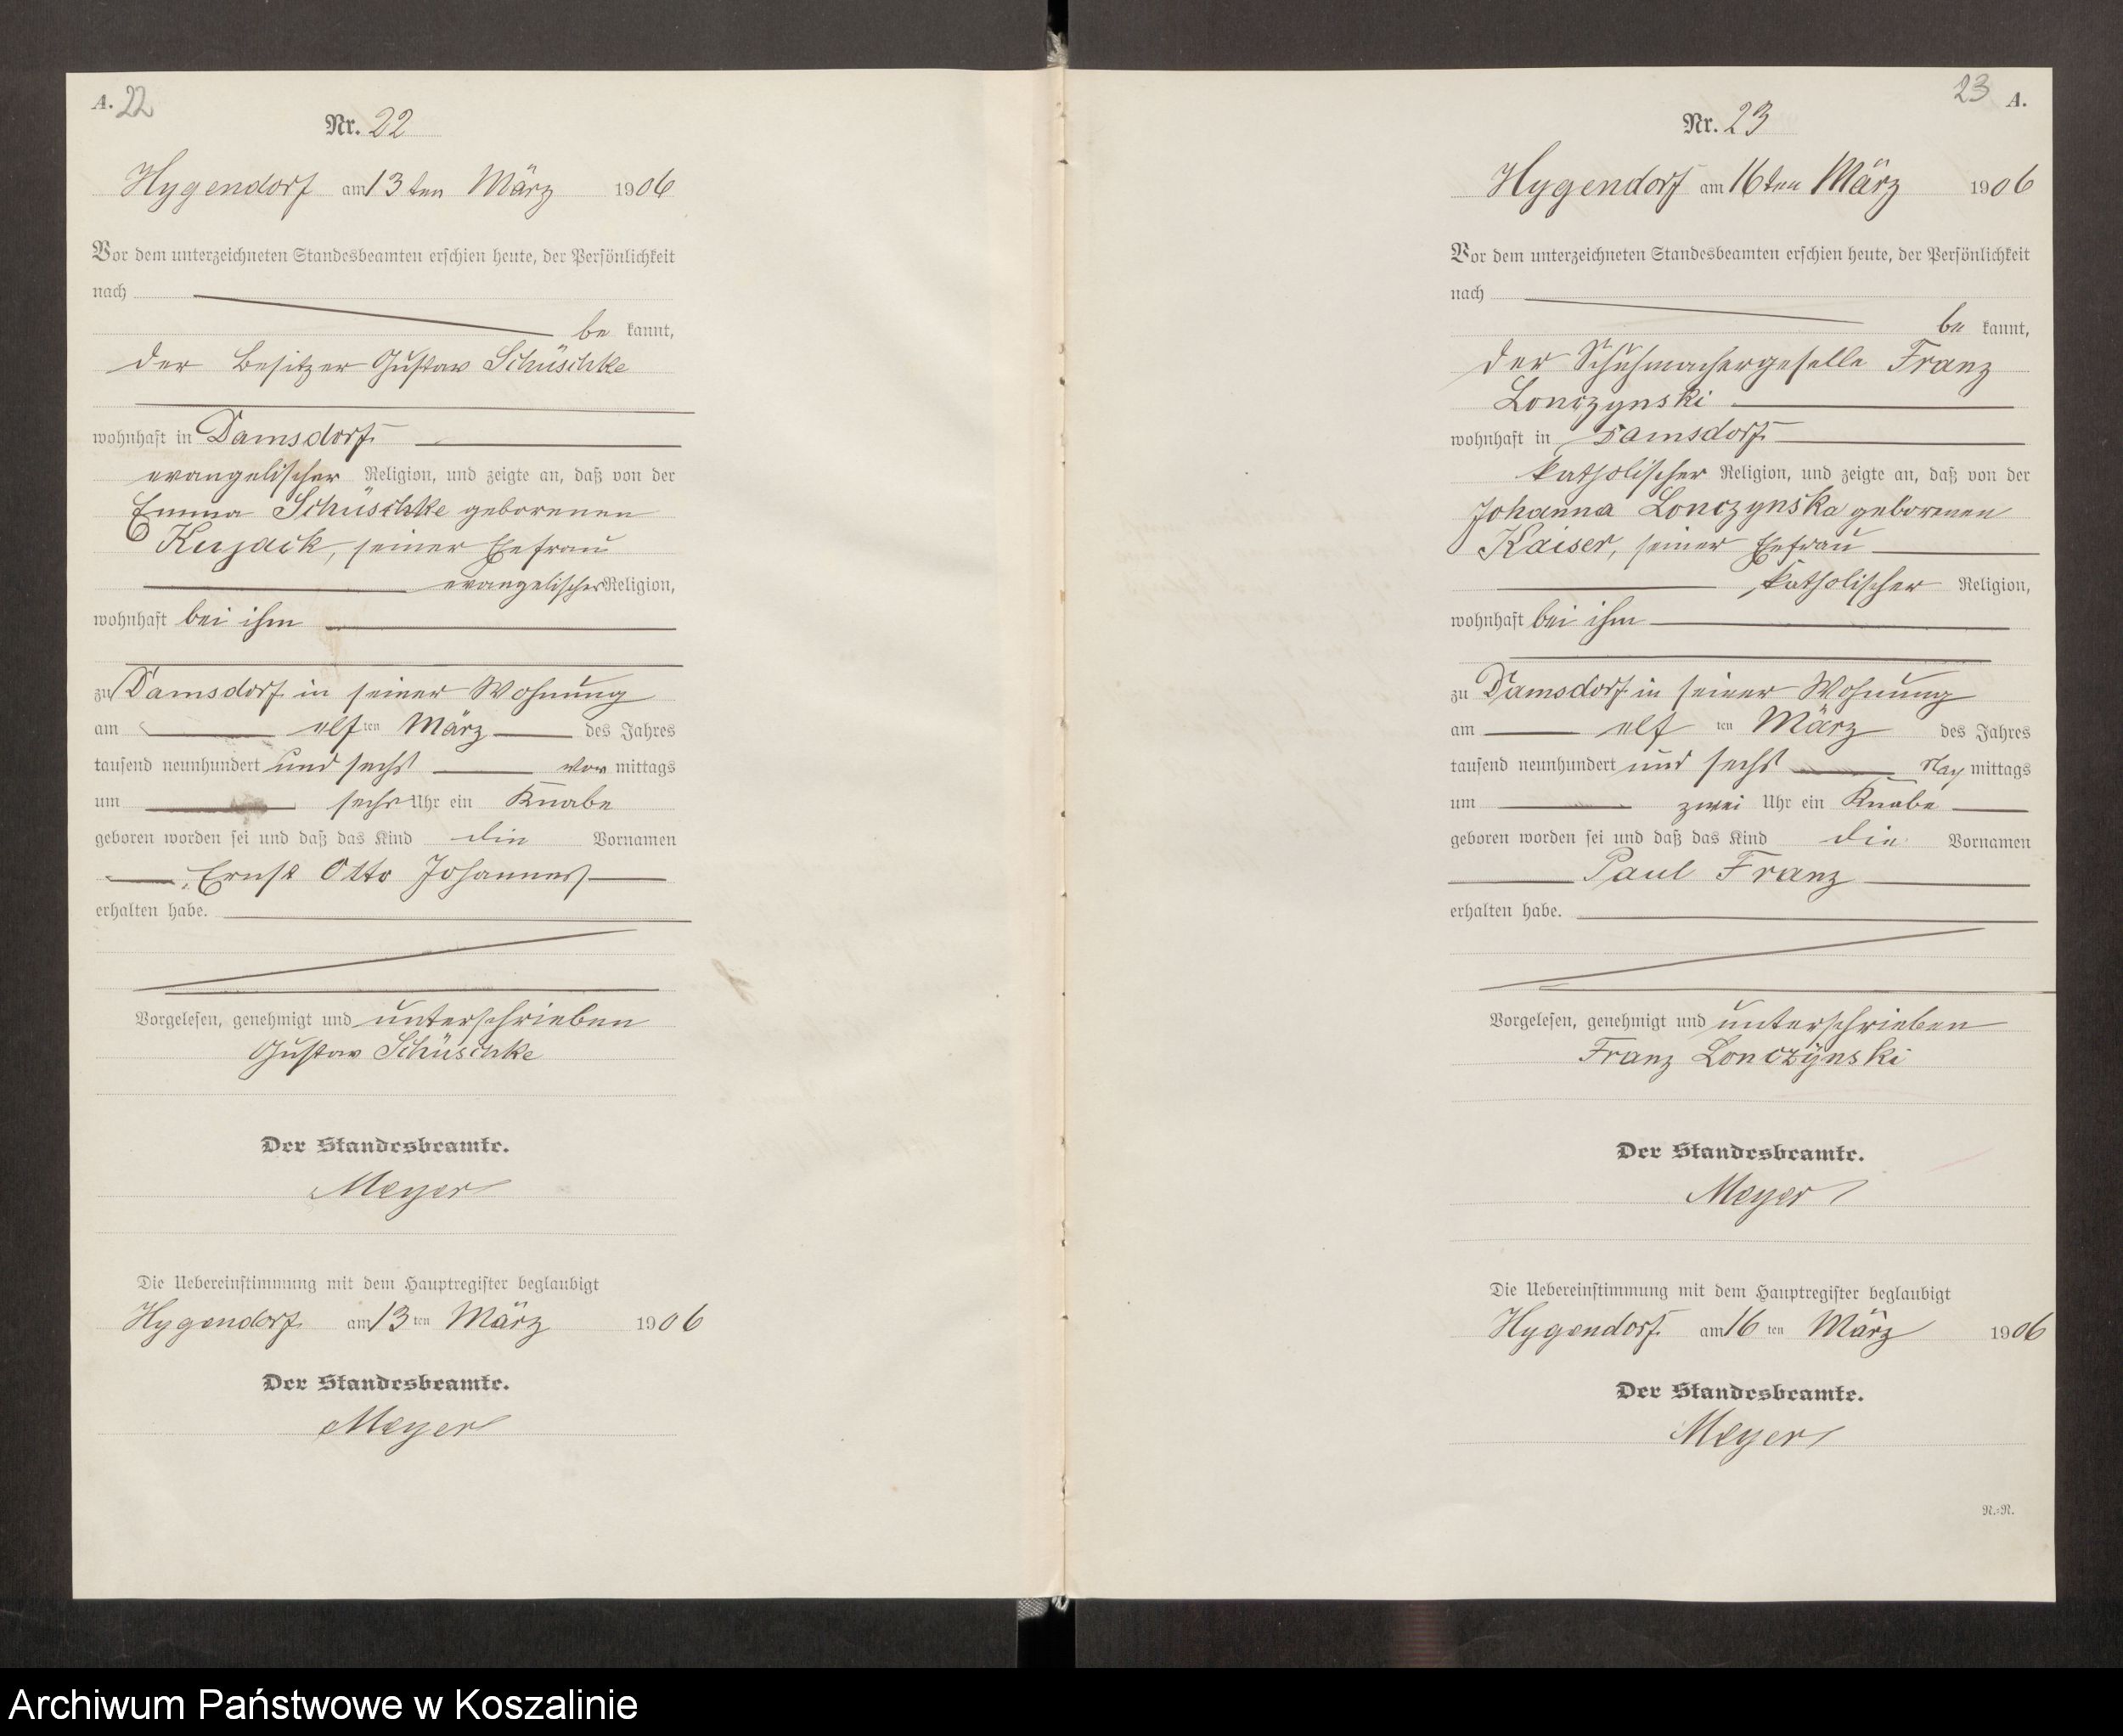 A. 22
Nr. 22
Hygendorf am 13ten März 1906
Vor dem unterzeichneten Standesbeamten erschien heute, der Persönlichkeit
nach
be kannt,
der Besitzer Gustav Schüschke
wohnhaft in Damsdorf
evangelischer Religion, und zeigte an, daß von der
Emma Schüschke geborenen
Kujack, seiner Ehefrau
evangelischer Religion,
wohnhaft bei ihm
zu Damsdorf in seiner Wohnung
am elf ten März des Jahres
tausend neunhundert und sechs vor mittags
um sechs Uhr ein Knabe
geboren worden sei und daß das Kind die Vornamen
Ernst Otto Johannes
erhalten habe.
Vorgelesen, genehmigt und unterschrieben
Gustav Schüschke
Der Standesbeamte.
Meyer
Die Uebereinstimmung mit dem Hauptregister beglaubigt
Hygendorf am 13 ten März 1906
Der Standesbeamte.
Meyer
23 A.
Nr. 23
Hygendorf am 16ten März 1906
Vor dem unterzeichneten Standesbeamten erschien heute, der Persönlichkeit
nach
be kannt,
der Schuhmachergeselle Franz
Lonczynski
wohnhaft in Damsdorf
katholischer Religion, und zeigte an, daß von der
Johanna Lonczynska geborenen
Kaiser, seiner Ehefrau
katholischer Religion,
wohnhaft bei ihm
zu Damsdorf in seiner Wohnung
am elf ten März des Jahres
tausend neunhundert und sechs Nach mittags
um zwei Uhr ein Knabe
geboren worden sei und daß das Kind die Vornamen
Paul Franz
erhalten habe.
Vorgelesen, genehmigt und unterschrieben
Franz Lonczÿnski
Der Standesbeamte.
Meyer
Die Uebereinstimmung mit dem Hauptregister beglaubigt
Hygendorf am 16 ten März 1906
Der Standesbeamte.
Meyer
N.-N.
Archiwum Państwowe w Koszalinie